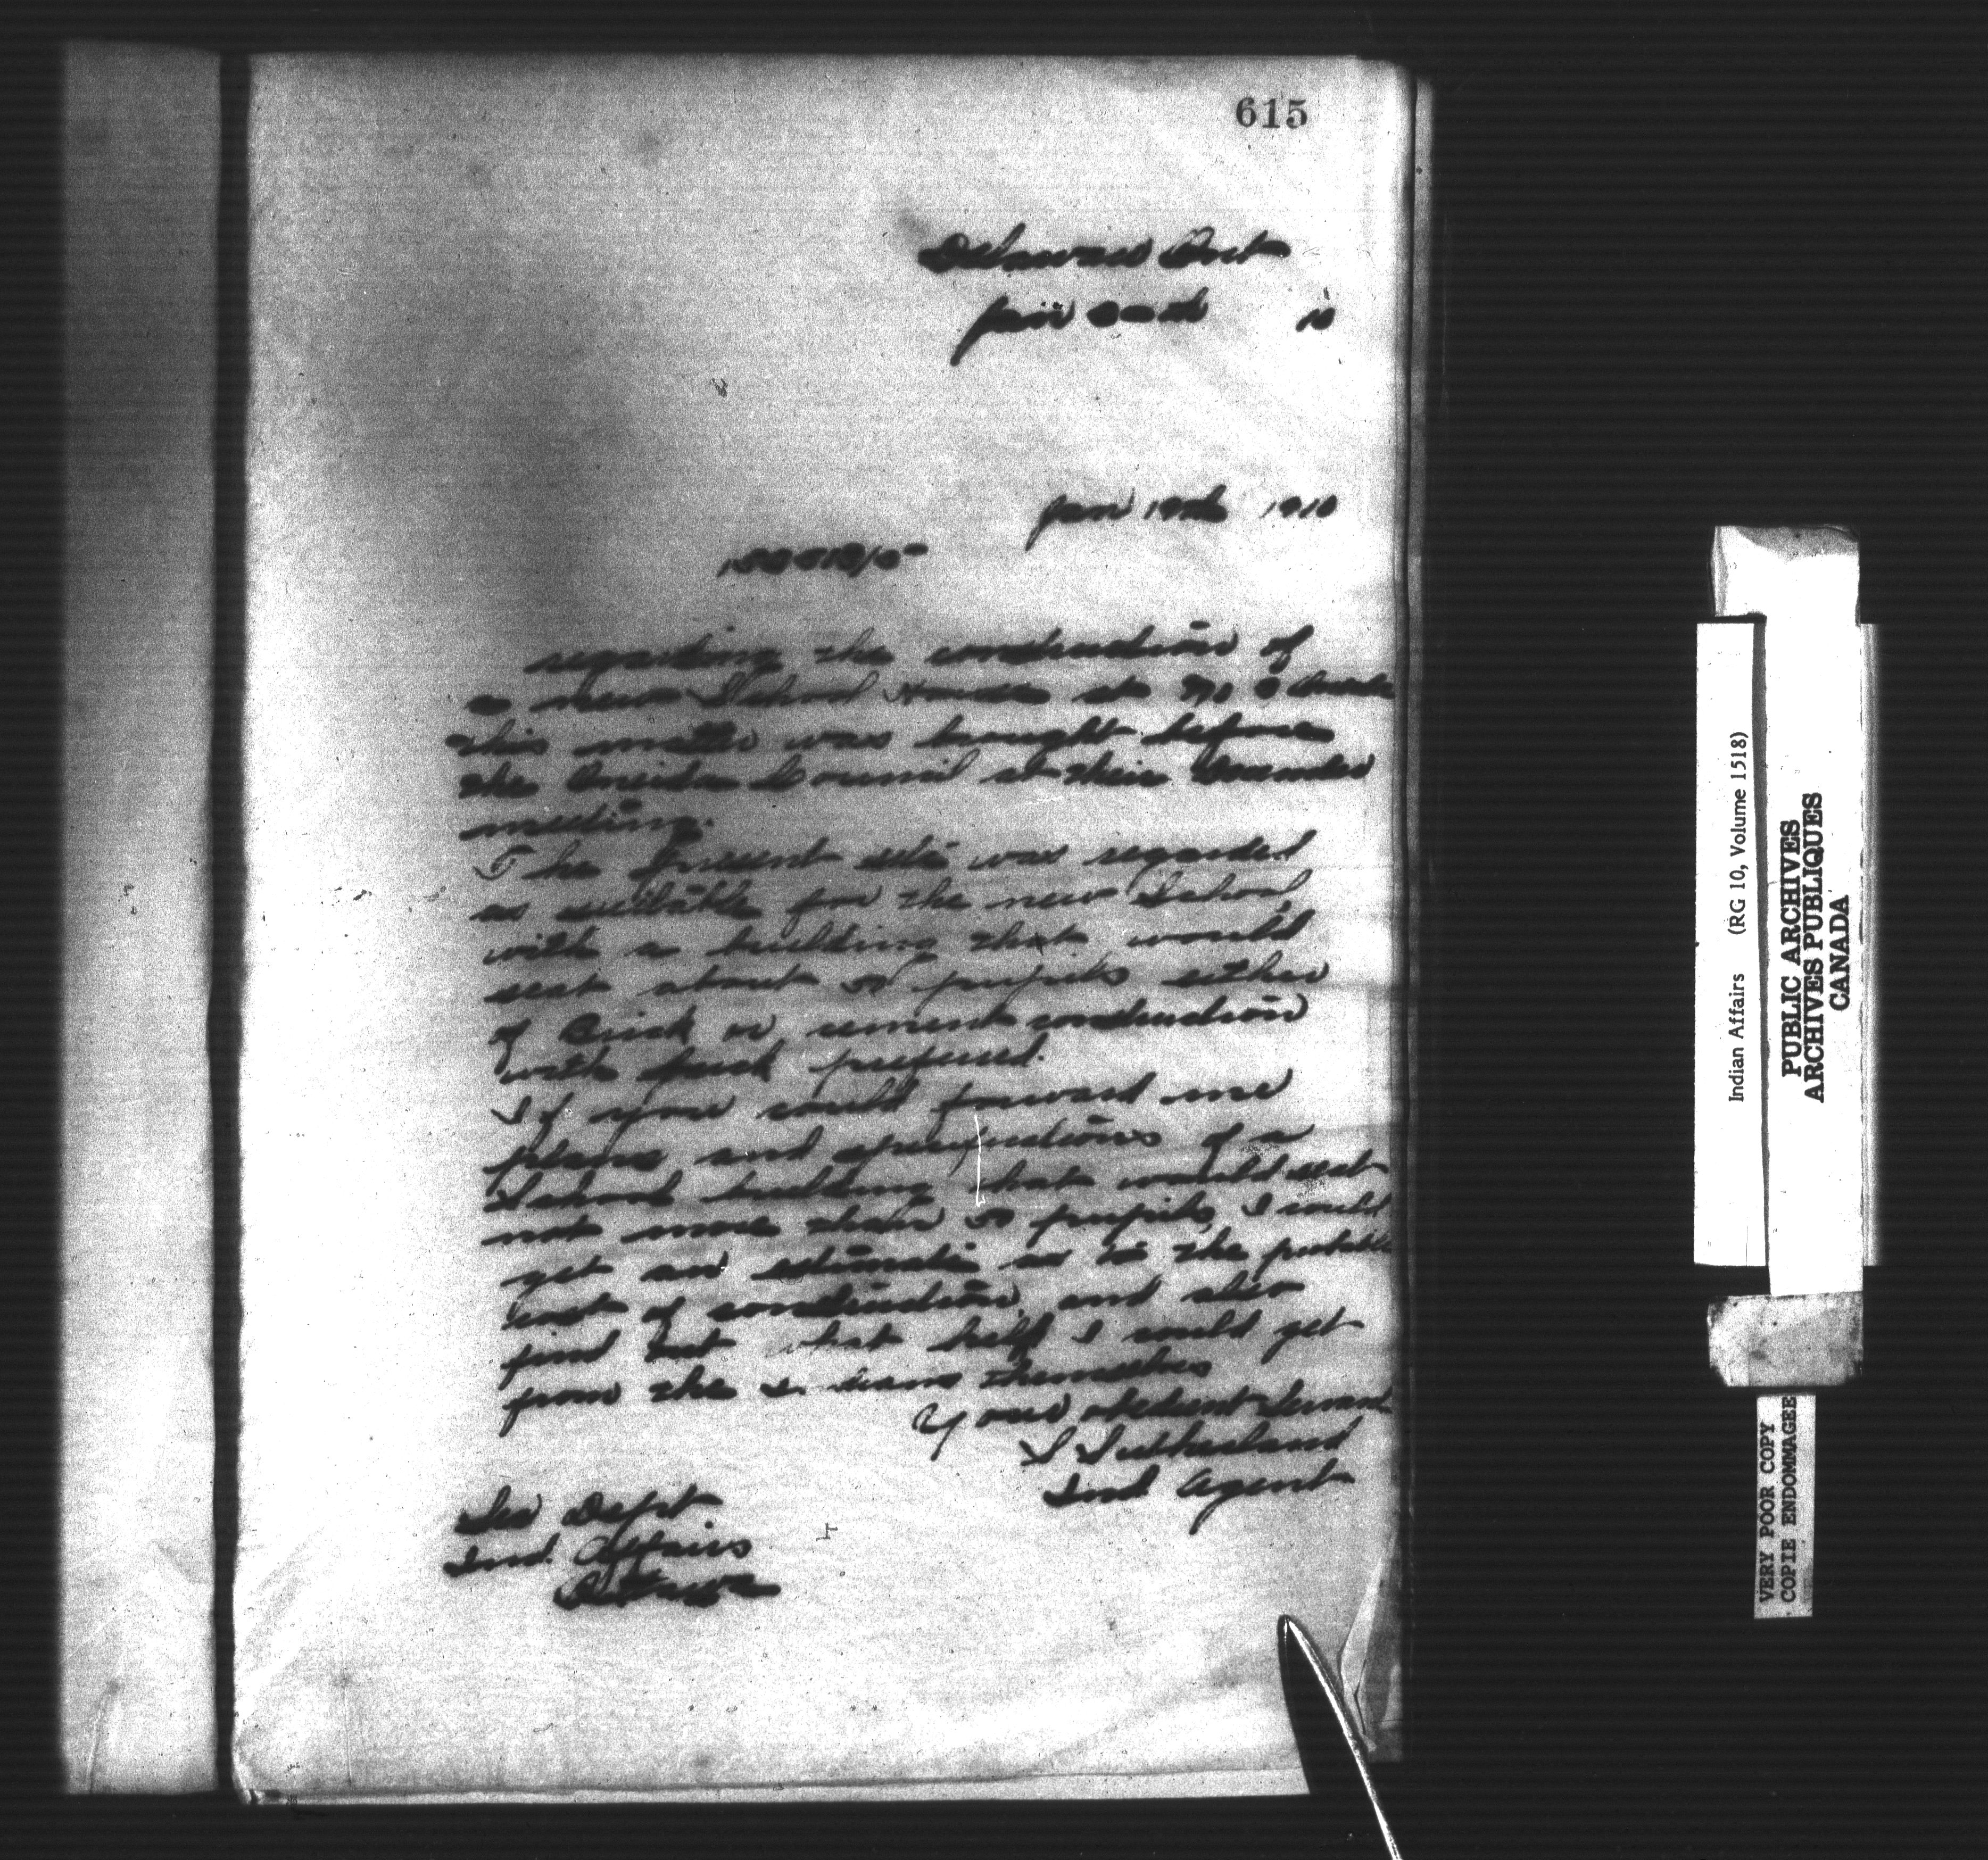 615
Delaware Ont
Jan 10
Jan 19th 1910
regarding the construction of
a new School House at No
this matter was brought before
the Oneida Council at their
meeting.
The present site was regarded
as suitable for the new School,
with a building that would
seat about 50 pupils either
of Brick or cement construction
with brick prefered.
If you could forward me
plans and specifications of a
School building that would seat
not more than 50 pupils, I could
get an estimate as to the probable
cost of construction, and also
find out what help I could get
from the themselves
Your obedient Servant
S Sutherland
Ind. Agent
Sec Dept
Ind. Affairs
Ottawa
Indian Affairs (RG 10, Volume 1518)
PUBLIC ARCHIVES
ARCHIVES PUBLIQUES
CANADA
VERY POOR COPY
COPIE ENDOMMAGEE